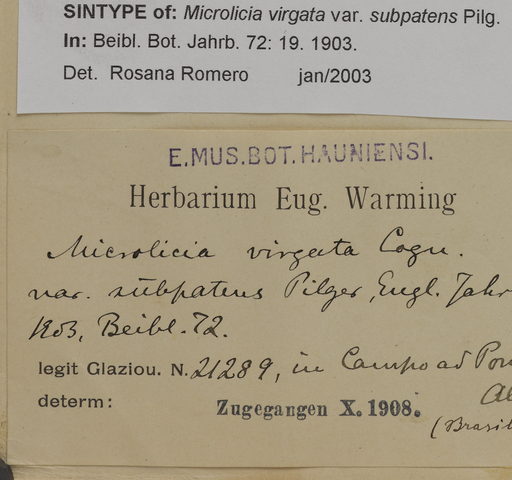 SINTYPE of: Microlicia virgata var. subpatens Pilg.
In: Beibl. Bot. Jahrb. 72: 19. 1903.
Det. Rosana Romero jan/2003
E.MUS.BOT.HAUNIENSI.
Herbarium Eug. Warming
Microlicia virgata Cogn.
var. subpatens Pilger, Engl. Jahr
1903, Beibl. 72.
legit Glaziou. N. 21289, in Campo ad
determ:
Zugegangen X. 1908.
(Brasil